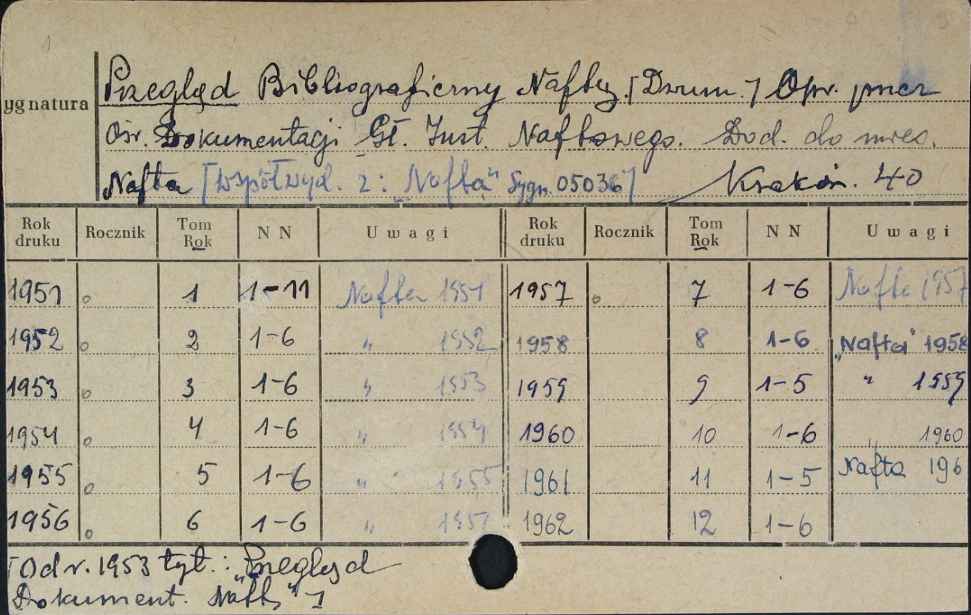 Przegląd Bibliograficzny Nafty. [Dwum.] Opr. przez
ygnatura
Ośr. Dokumentacji Gł. Inst. Naftowego. Dod. do mies.
Nafta [Współwyd. z: "Nafta" Sygn. 05036] Kraków. 40
Rok druku Rocznik Tom Rok N N Uwagi Rok druku Rocznik Tom Rok N N Uwagi
1951 1 1-11 Nafta 1951 1957 7 1-6 Nafta 1957
1952 2 1-6 " 1952 1958 8 1-6 "Nafta" 1958
1953 3 1-6 " 1953 1959 9 1-5 " 1959
1954 4 1-6 " 1954 1960 10 1-6 " 1960
1955 5 1-6 " 1955 1961 11 1-5 Nafta 196
1956 6 1-6 " 1962 12 1-6
[Od r. 1953 tyt.: "Przegląd
Dokument. Nafty"]